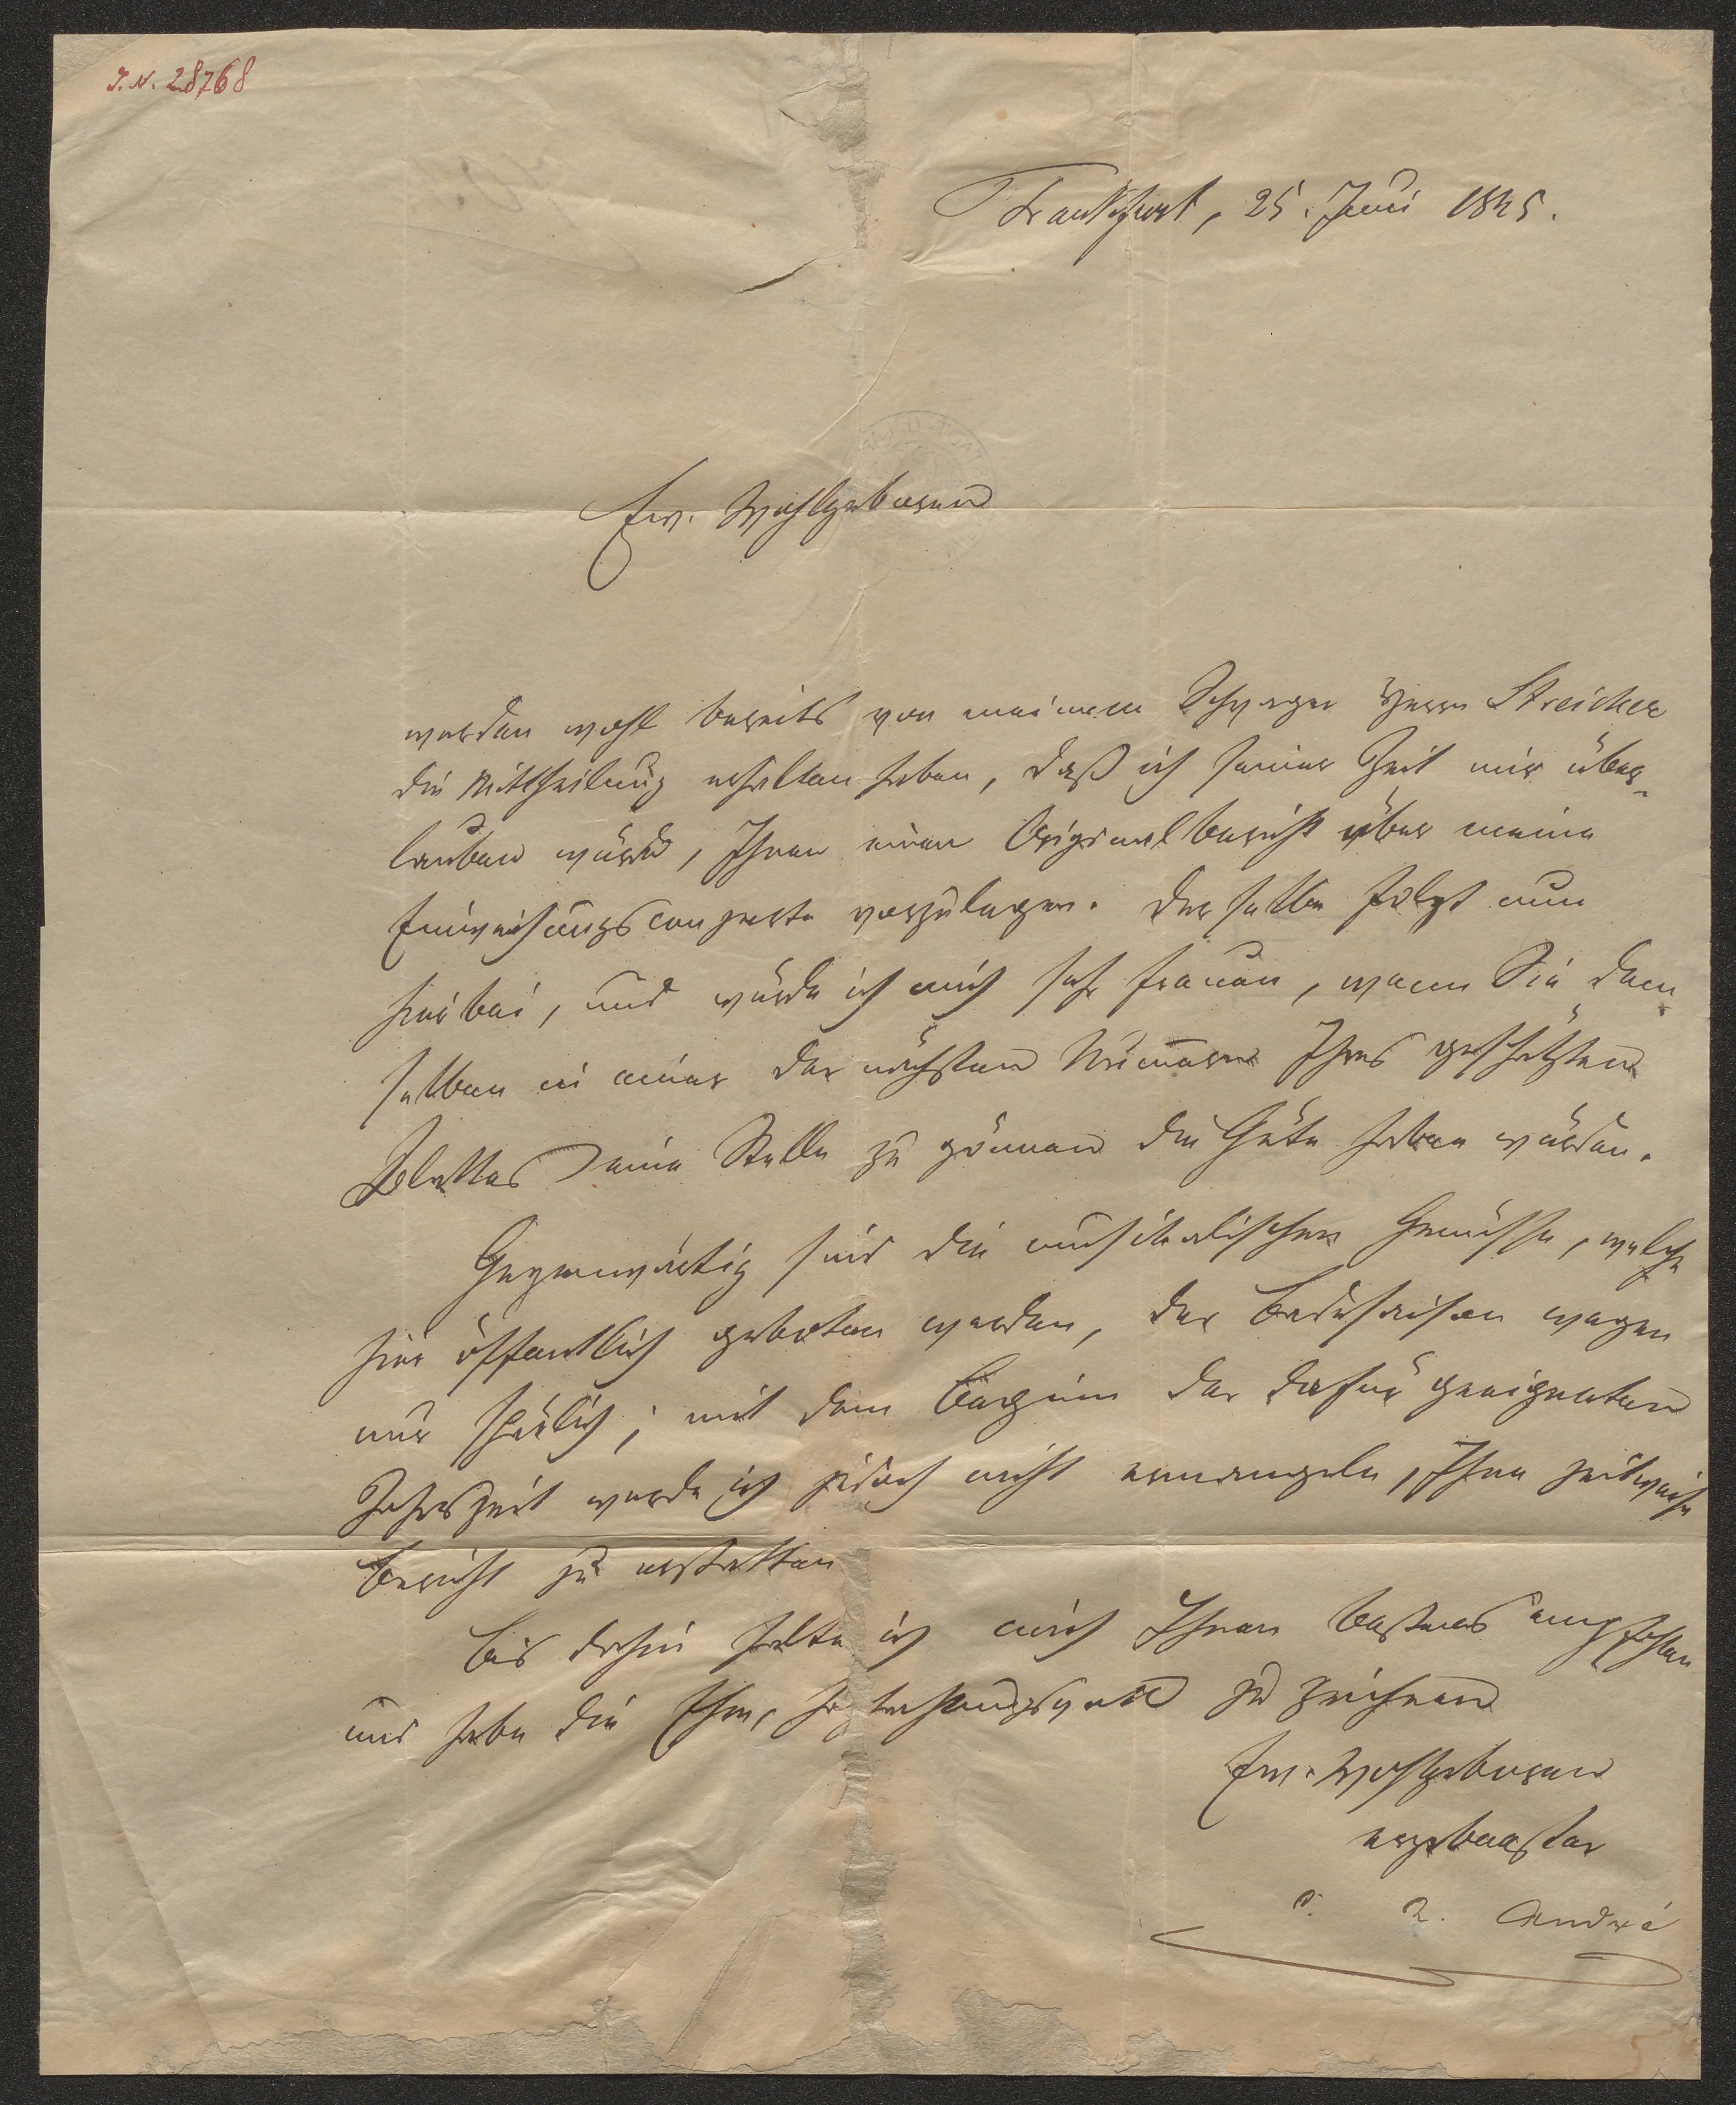 I.N. 28768
Frankfurt, 25. Juni 1845.
Ew. Wohlgeboren
werden wohl bereits von meinem Schwager Herrn Streicher
die Mittheilung erhalten haben, daß ich seiner Zeit mir über-
lauben würde, Ihnen einen Originalbericht über meine
Einweihungsconzerte vorzulegen. Derselbe folgt nun
hierbei, und würde ich mich sehr freuen, wenn Sie dem-
selben in einer der nächsten Nummern Ihres geschätzten
Blattes eine Stelle zu gönnen die Güte haben würden.
Gegenwärtig sind die musikalischen Genüsse, welche
hier öffentlich geboten werden, der Badesaison wegen
nur spärlich; mit dem Beginn der dafür geeigneten
Jahrszeit werde ich jedoch nicht ermangeln, Ihnen zeitweise
Bericht zu erstatten
Bis dahin halte ich mich Ihnen bestens empfohlen
und habe die Ehre, hochachtungsvoll zu zeichnen
Ew. Wohlgeboren
ergebenster
A. André